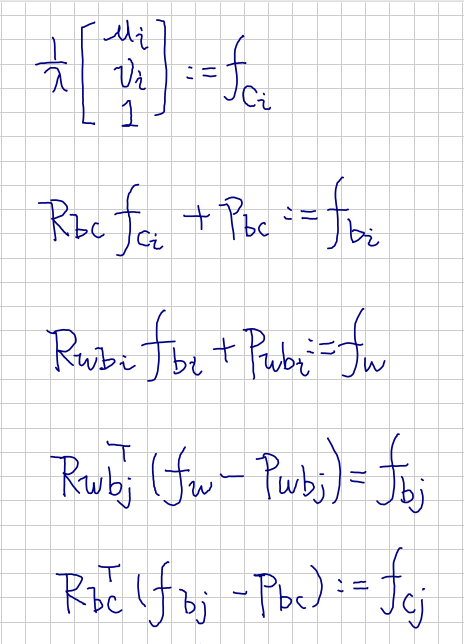 1/λ [u_i v_i 1] := f_{C_i}
R_{bc} f_{C_i} + P_{bc} := f_{b_i}
R_{wb_i} f_{b_i} + P_{wb_i} := f_w
R_{wb_j}^T (f_w - P_{wb_j}) = f_{b_j}
R_{bc}^T (f_{b_j} - P_{bc}) := f_{C_j}